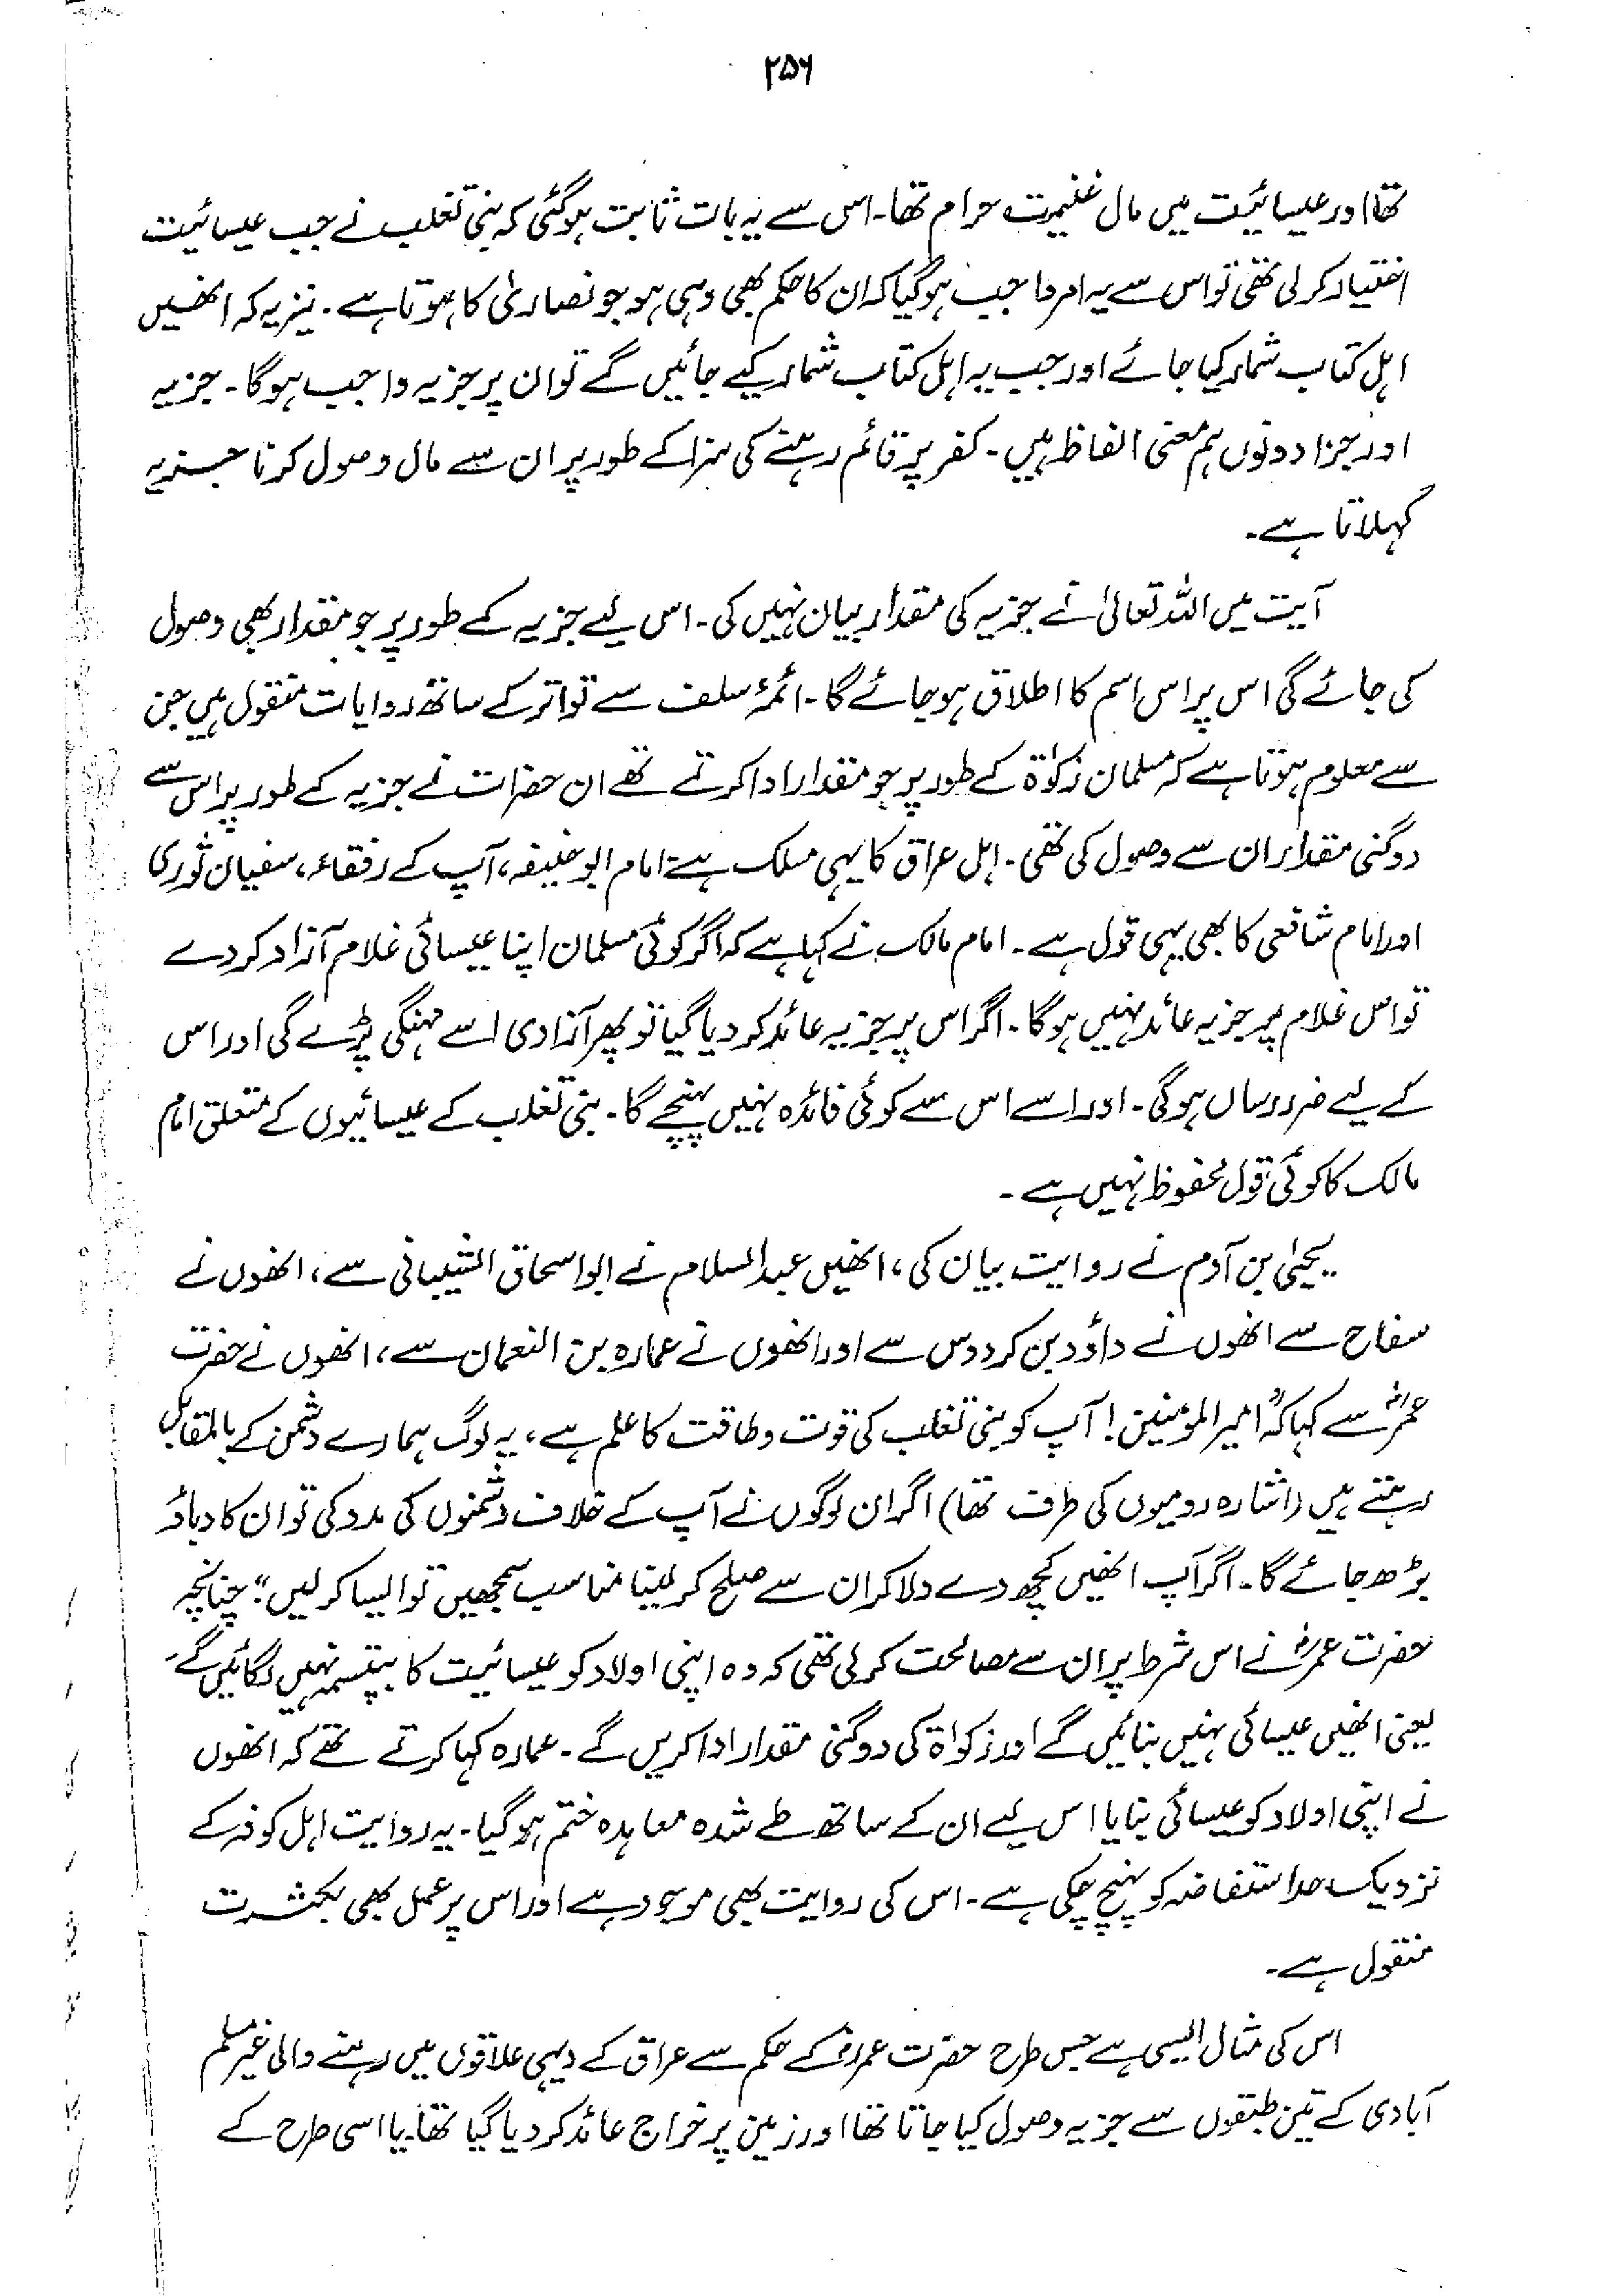 ۲۵۶
تھا اور عیسائیت میں مال غنیمت حرام تھا۔ اس سے یہ بات ثابت ہوگئی کہ بنی تغلب نے جب عیسائیت
اختیار کرلی تھی تو اس سے یہ امر واجب ہوگیا کہ ان کا حکم بھی وہی ہو جو نصاریٰ کا ہوتا ہے۔ نیز یہ کہ انھیں
اہل کتاب شمار کیا جائے اور جب یہ اہل کتاب شمار کیے جائیں گے تو ان پر جزیہ واجب ہوگا۔ جزیہ
اور جزا دونوں ہم معنی الفاظ ہیں۔ کفر پر قائم رہنے کی سزا کے طور پر ان سے مال وصول کرنا جزیہ
کہلاتا ہے۔
آیت میں اللہ تعالیٰ نے جزیہ کی مقدار بیان نہیں کی۔ اس لیے جزیہ کے طور پر جو مقدار بھی وصول
کی جائے گی اس پر اس اسم کا اطلاق ہوجائے گا۔ ائمۂ سلف سے تواتر کے ساتھ روایات منقول ہیں جن
سے معلوم ہوتا ہے کہ مسلمان زکوٰۃ کے طور پر جو مقدار ادا کرتے تھے ان حضرات نے جزیہ کے طور پر اس سے
دوگنی مقدار ان سے وصول کی تھی۔ اہل عراق کا یہی مسلک ہے امام ابوحنیفہ، آپ کے رفقاء، سفیان ثوری
اور امام شافعی کا بھی یہی قول ہے۔ امام مالک نے کہا ہے کہ اگر کوئی مسلمان اپنا عیسائی غلام آزاد کردے
تو اس غلام پر جزیہ عائد نہیں ہوگا۔ اگر اس پر جزیہ عائد کردیا گیا تو پھر آزادی اسے مہنگی پڑے گی اور اس
کے لیے ضرر رساں ہوگی۔ اور اسے اس سے کوئی فائدہ نہیں پہنچے گا۔ بنی تغلب کے عیسائیوں کے متعلق امام
مالک کا کوئی قول محفوظ نہیں ہے۔
یحییٰ بن آدم نے روایت بیان کی، انھیں عبدالسلام نے ابواسحاق الشیبانی سے، انھوں نے
سفاح سے انھوں نے داؤد بن کردوس سے اور انھوں نے عمارہ بن النعمان سے، انھوں نے حضرت
عمرؓ سے کہا کہ "امیرالمومنین! آپ کو بنی تغلب کی قوت و طاقت کا علم ہے، یہ لوگ ہمارے دشمن کے بالمقابل
رہتے ہیں (اشارہ رومیوں کی طرف تھا) اگر ان لوگوں نے آپ کے خلاف دشمنوں کی مدد کی تو ان کا دباؤ
بڑھ جائے گا۔ اگر آپ انھیں کچھ دے دلا کر ان سے صلح کرلینا مناسب سمجھیں تو ایسا کرلیں" چنانچہ
حضرت عمرؓ نے اس شرط پر ان سے مصالحت کرلی تھی کہ وہ اپنی اولاد کو عیسائیت کا بپتسمہ نہیں لگائیں گے۔
یعنی انھیں عیسائی نہیں بنائیں گے اور زکواۃ کی دوگنی مقدار ادا کریں گے۔ عمارہ کہا کرتے تھے کہ انھوں
نے اپنی اولاد کو عیسائی بنایا اس لیے ان کے ساتھ طے شدہ معاہدہ ختم ہوگیا۔ یہ روایت اہل کوفہ کے
نزدیک حد استفاضہ کو پہنچ چکی ہے۔ اس کی روایت بھی موجود ہے اور اس پر عمل بھی بکثرت
منقول ہے۔
اس کی مثال ایسی ہے جس طرح حضرت عمرؓ کے حکم سے عراق کے دیہی علاقوں میں رہنے والی غیر مسلم
آبادی کے تین طبقوں سے جزیہ وصول کیا جاتا تھا اور زمین پر خراج عائد کردیا گیا تھا۔ یا اسی طرح کے